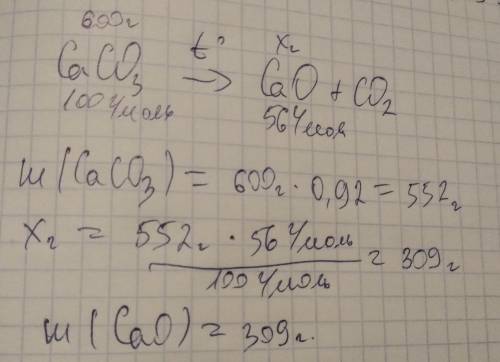 600г t° xг
CaCO₃ → CaO + CO₂
100г/моль 56г/моль
m(CaCO₃) = 600г · 0,92 = 552г
xг = 552г · 56г/моль / 100г/моль = 309г
m(CaO) = 309г.